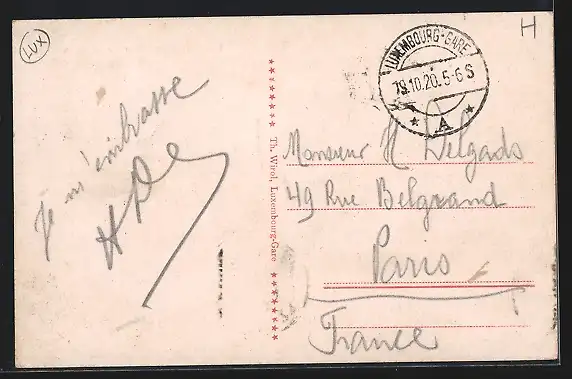 LUX
H
LUXEMBOURG-GARE
19.10.20.5-6S
* A *
Je m'embrasse
HDe
Th. Wirol, Luxembourg-Gare
Monsieur H Delgado
49 Rue Belgrand
Paris
France